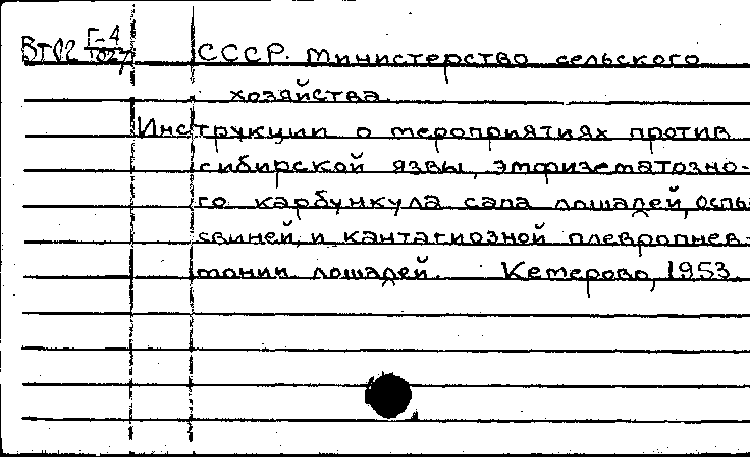 Вт02 Г-4
1027
СССР. Министерство сельского
хозяйства.
Инструкции о мероприятиях против
сибирской язвы, эмфизематозно-
го карбункула сапа лошадей, оспы
свиней, и кантагиозной плевропнев-
монии лошадей. Кемерово, 1953